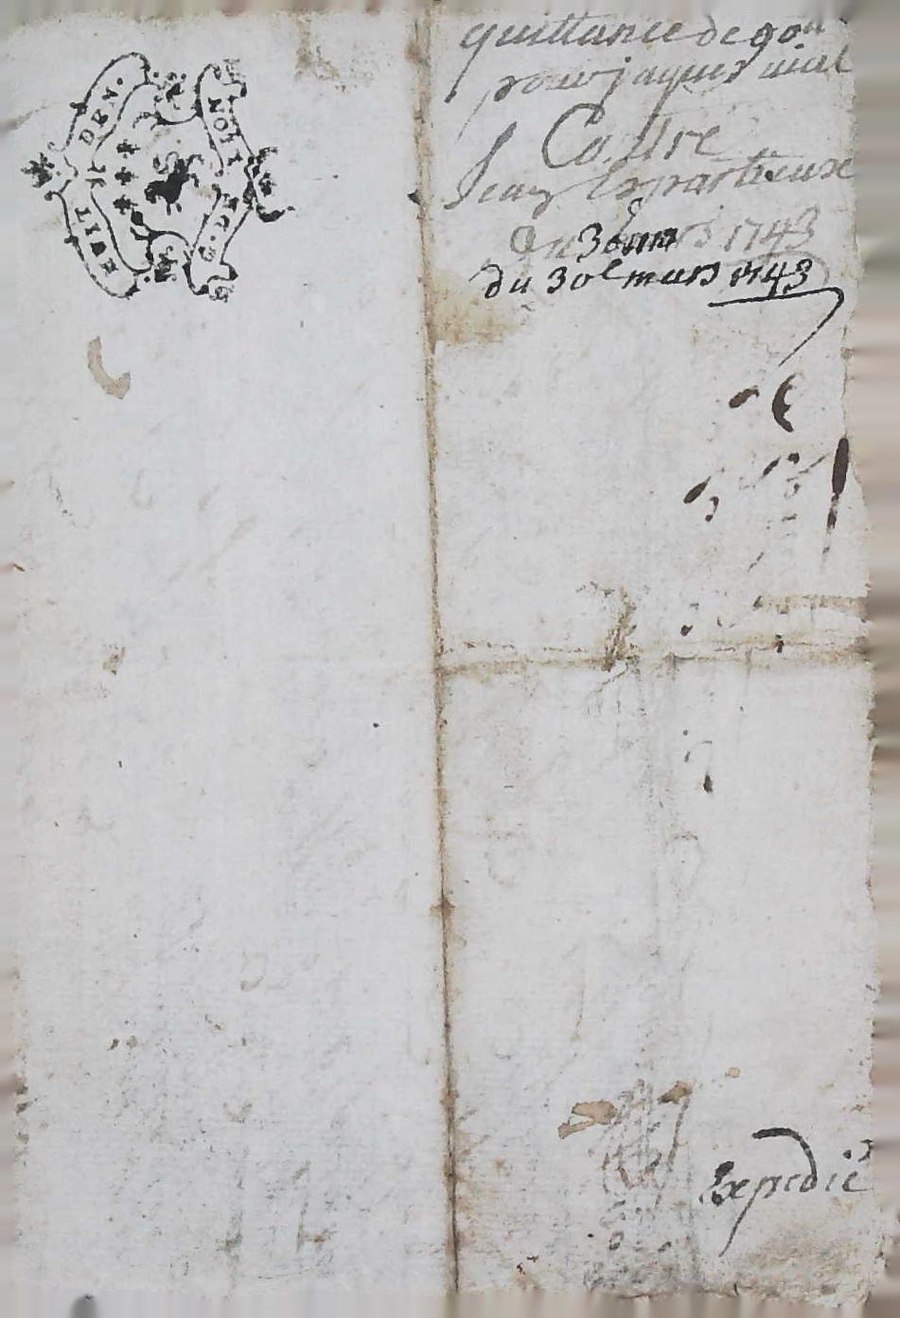 HUIT DEN.
NOT. G. DE
quittance de 90ᵗᵗ
pour jaques vial
Castre
Jean Espartieuse
Du 30 mars 1743
du 30ᵉ mars 1743
Expedié